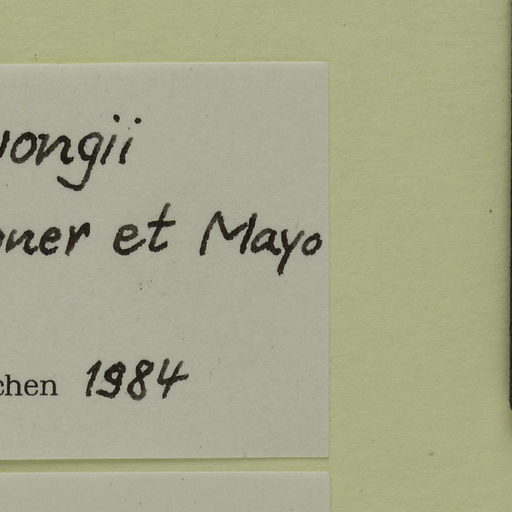 wongii
oner et Mayo
chen 1984